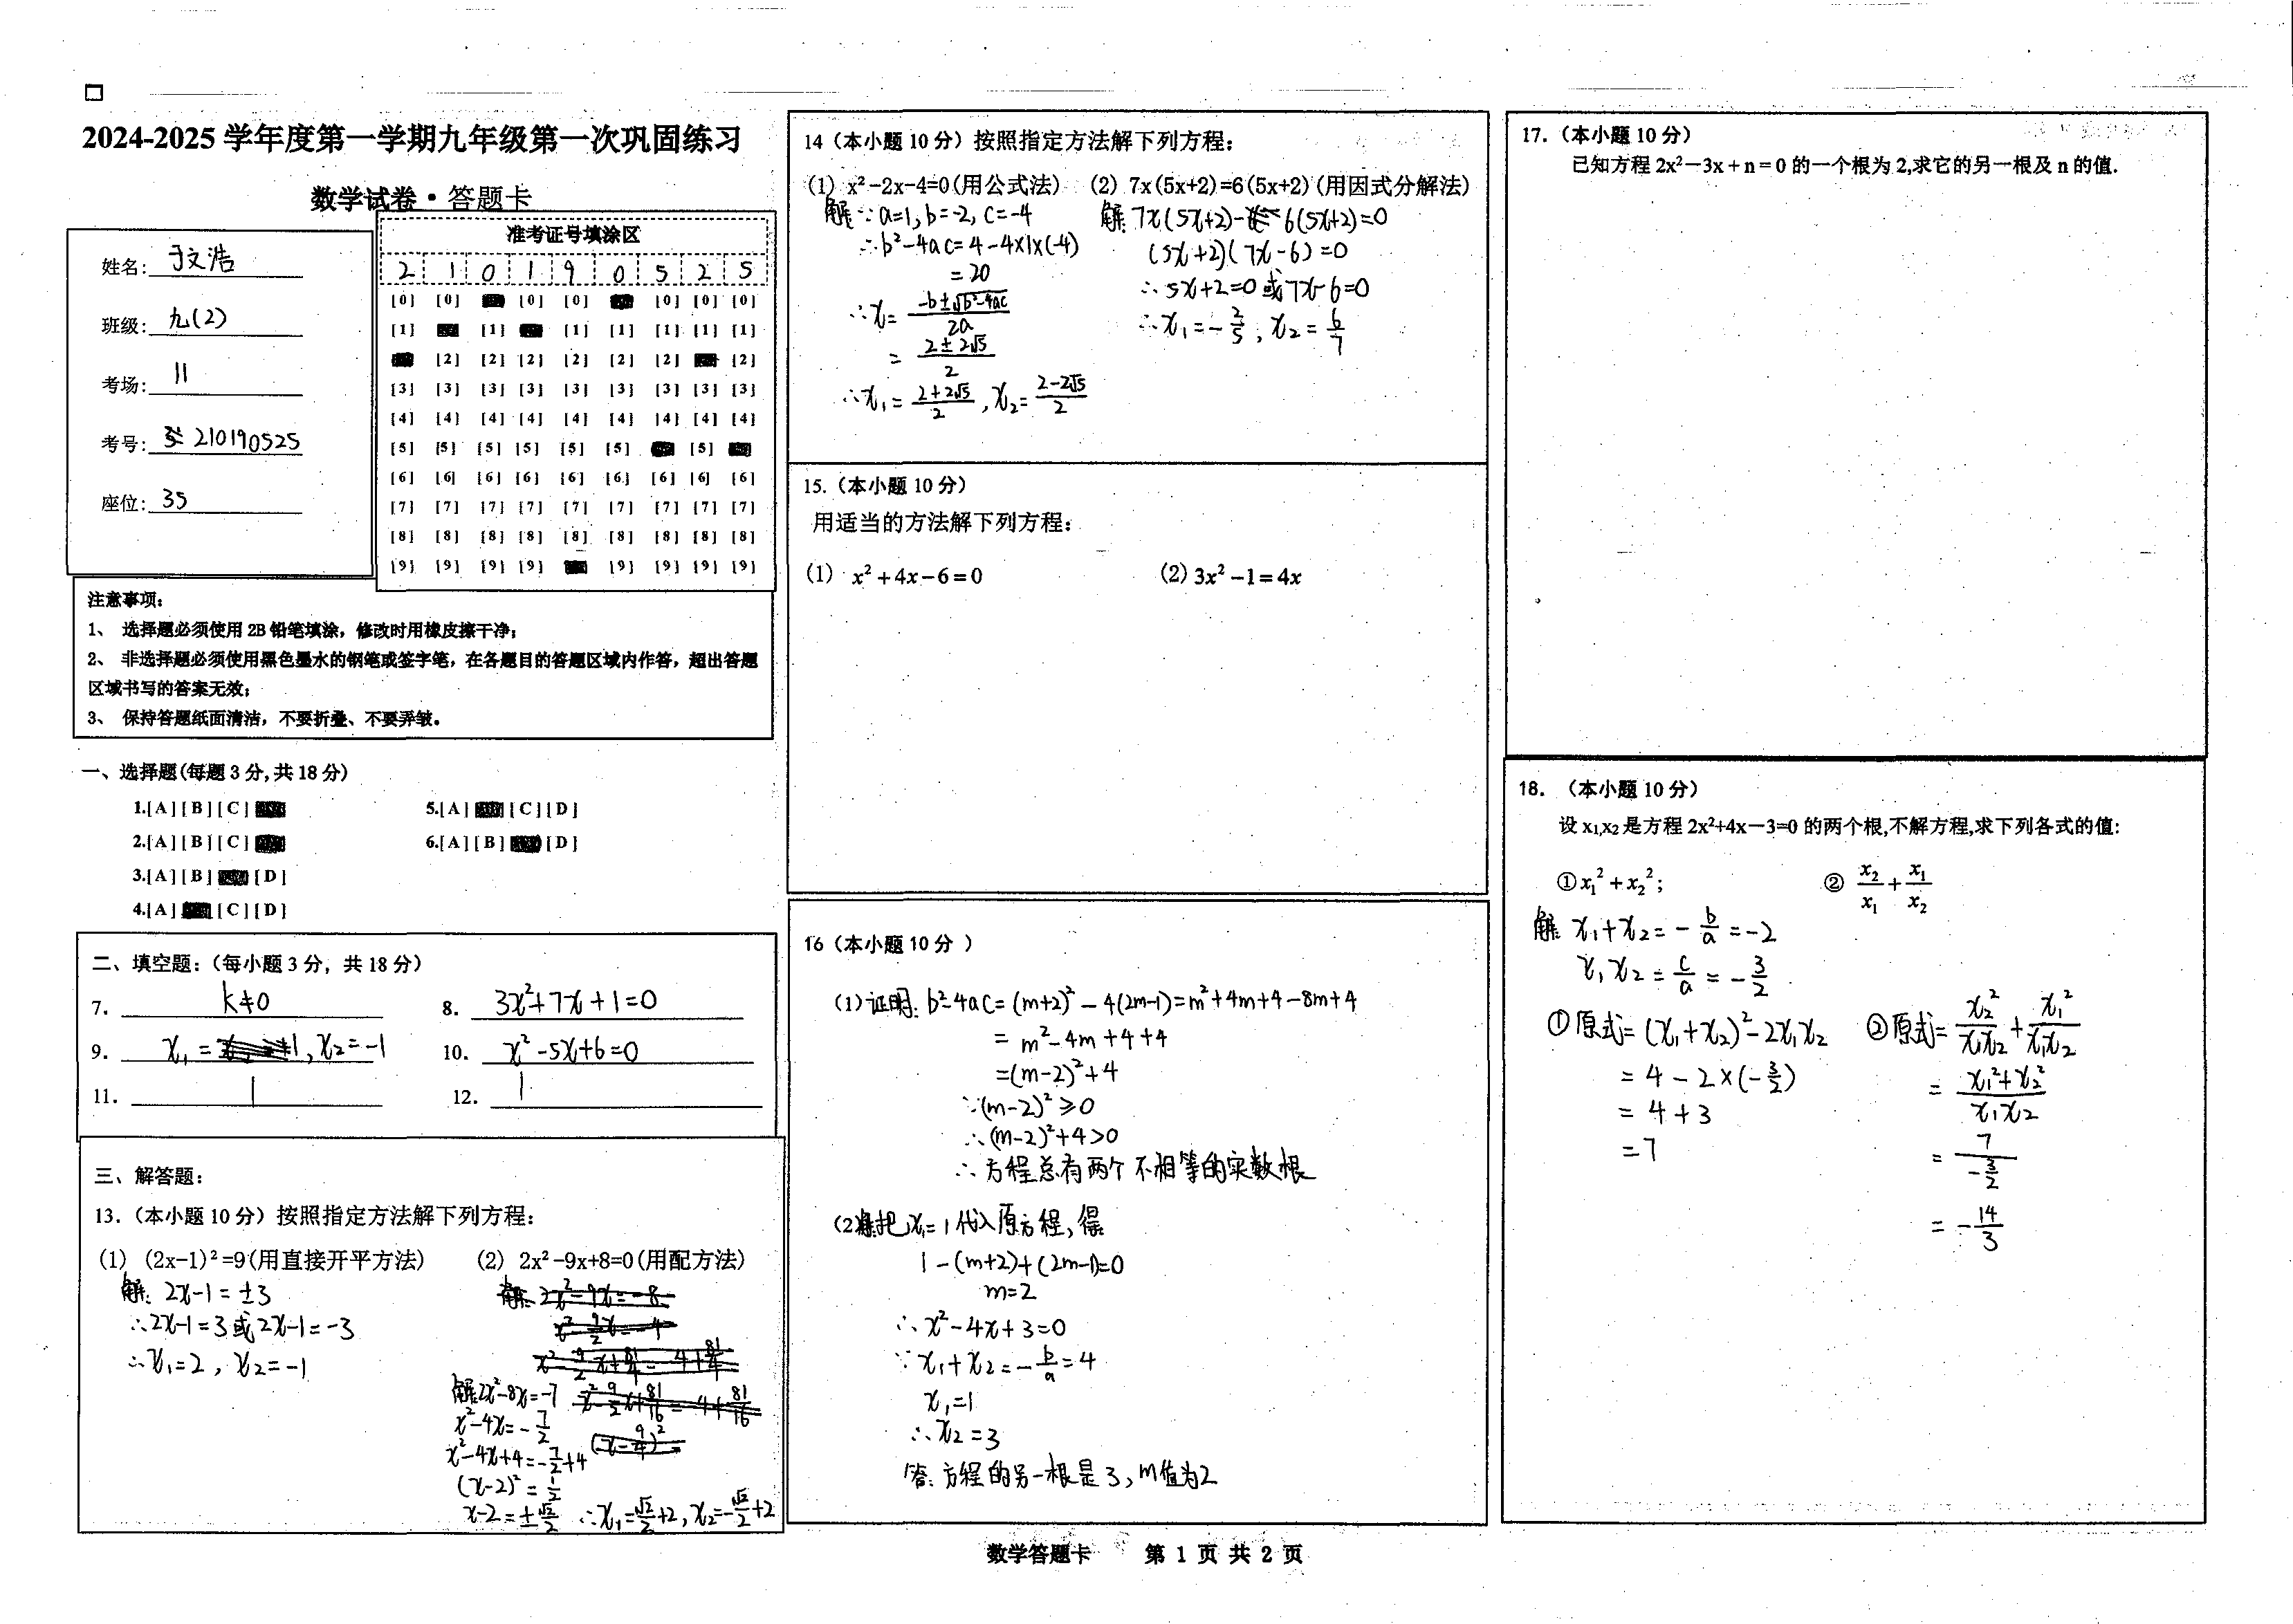 2024-2025 学年度第一学期九年级第一次巩固练习
数学试卷·答题卡
姓名：于文浩
班级：九(2)
考场：11
考号：210190525
座位：35
准考证号填涂区
2 1 0 1 9 0 5 2 5
[0] [0] [0] [0] [0] [0] [0]
[1] [1] [1] [1] [1] [1] [1]
[2] [2] [2] [2] [2] [2] [2]
[3] [3] [3] [3] [3] [3] [3] [3] [3]
[4] [4] [4] [4] [4] [4] [4] [4] [4]
[5] [5] [5] [5] [5] [5] [5]
[6] [6] [6] [6] [6] [6] [6] [6] [6]
[7] [7] [7] [7] [7] [7] [7] [7] [7]
[8] [8] [8] [8] [8] [8] [8] [8] [8]
[9] [9] [9] [9] [9] [9] [9] [9]
注意事项：
1、 选择题必须使用 2B 铅笔填涂，修改时用橡皮擦干净；
2、 非选择题必须使用黑色墨水的钢笔或签字笔，在各题目的答题区域内作答，超出答题
区域书写的答案无效；
3、 保持答题纸面清洁，不要折叠、不要弄皱。
一、选择题(每题 3 分,共 18 分)
1.[A][B][C]
5.[A] [C][D]
2.[A][B][C]
6.[A][B] [D]
3.[A][B] [D]
4.[A] [C][D]
二、填空题：（每小题 3 分，共 18 分）
7. k≠0
8. 3x²+7x+1=0
9. x₁=1, x₂=-1
10. x²-5x+6=0
11. 1
12. 1
三、解答题：
13.（本小题 10 分）按照指定方法解下列方程：
(1) (2x-1)²=9(用直接开平方法)
解: 2x-1=±3
∴2x-1=3或2x-1=-3
∴x₁=2, x₂=-1
(2) 2x²-9x+8=0(用配方法)
解:2x²-8x=-7
x²-4x=-7/2
x²-4x+4=-7/2+4
(x-2)²=1/2
x-2=±√2/2 ∴x₁=√2/2+2, x₂=-√2/2+2
14（本小题 10 分）按照指定方法解下列方程：
(1) x²-2x-4=0(用公式法)
解:∵a=1, b=-2, c=-4
∴b²-4ac=4-4×1×(-4)
=20
∴x=(-b±√(b²-4ac))/2a
=(2±2√5)/2
∴x₁=(2+2√5)/2, x₂=(2-2√5)/2
(2) 7x(5x+2)=6(5x+2)(用因式分解法)
解: 7x(5x+2)-6(5x+2)=0
(5x+2)(7x-6)=0
∴5x+2=0或7x-6=0
∴x₁=-2/5, x₂=6/7
15.（本小题 10 分）
用适当的方法解下列方程：
(1) x²+4x-6=0
(2) 3x²-1=4x
16（本小题 10 分 ）
(1)证明: b²-4ac=(m+2)²-4(2m-1)=m²+4m+4-8m+4
=m²-4m+4+4
=(m-2)²+4
∵(m-2)²≥0
∴(m-2)²+4>0
∴方程总有两个不相等的实数根
(2)解:把x₁=1代入原方程,得
1-(m+2)+(2m-1)=0
m=2
∴x²-4x+3=0
∵x₁+x₂=-b/a=4
x₁=1
∴x₂=3
答:方程的另一根是3,m值为2
数学答题卡 第 1 页 共 2 页
17.（本小题 10 分）
已知方程 2x²-3x+n=0 的一个根为 2,求它的另一根及 n 的值.
18. （本小题 10 分）
设 x₁,x₂ 是方程 2x²+4x-3=0 的两个根,不解方程,求下列各式的值:
①x₁²+x₂²;
② x₂/x₁+x₁/x₂
解: x₁+x₂=-b/a=-2
x₁x₂=c/a=-3/2
①原式=(x₁+x₂)²-2x₁x₂
=4-2×(-3/2)
=4+3
=7
②原式=x₂²/x₁x₂+x₁²/x₁x₂
=(x₁²+x₂²)/x₁x₂
=7/(-3/2)
=-14/3